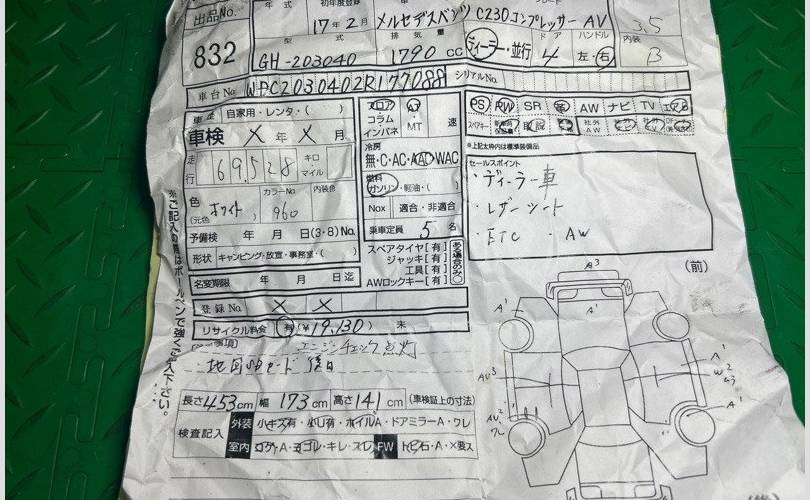 出品No. 832
年式 初年度登録 17年2月
メルセデスベンツ C230コンプレッサー AV
35
型式 GH-203040
排気量 1790 CC
ディーラー・並行
ドア 4
ハンドル 左・右
内装 B
車台No. WDC2030402R177088
シリアルNo.
自家用・レンタ・( )
車検 X年X月
走行 169,528 キロ・マイル
色(元色) ホワイト
カラーNo 960
内装色
予備検 年 月 日(3・8)No.
形状 キャンピング・放宣・事務室・( )
名変期限 年 月 日迄
登録No. X X
リサイクル料金 有(¥19,130) 未
フロア コラム インパネ
AT・MT 速
冷房
無・C・AC・AAC・WAC
燃料
ガソリン・軽油・( )
Nox 適合・非適合
乗車定員 5名
スペアタイヤ[有]
ジャッキ[有]
工具[有]
AWロックキー[有]
ある場合のみ○
PS PW SR 革 AW ナビ TV エアB
スペアキー
社外AW
※上記太枠内は標準装備品
セールスポイント
・ディーラー車
・レザーシート
・ETC ・AW
エンジンチェック点灯
後日
長さ453cm 幅173cm 高さ141cm (車検証上の寸法)
検査記入
外装 小キズ有・小凹有・ホイルA・ドアミラーA・ワレ
室内
FW トビ石・A・X要ス
※ご記入の際はボールペンで強くご記入下さい。
(前)
A3
A'
A'
A'
W2
A'